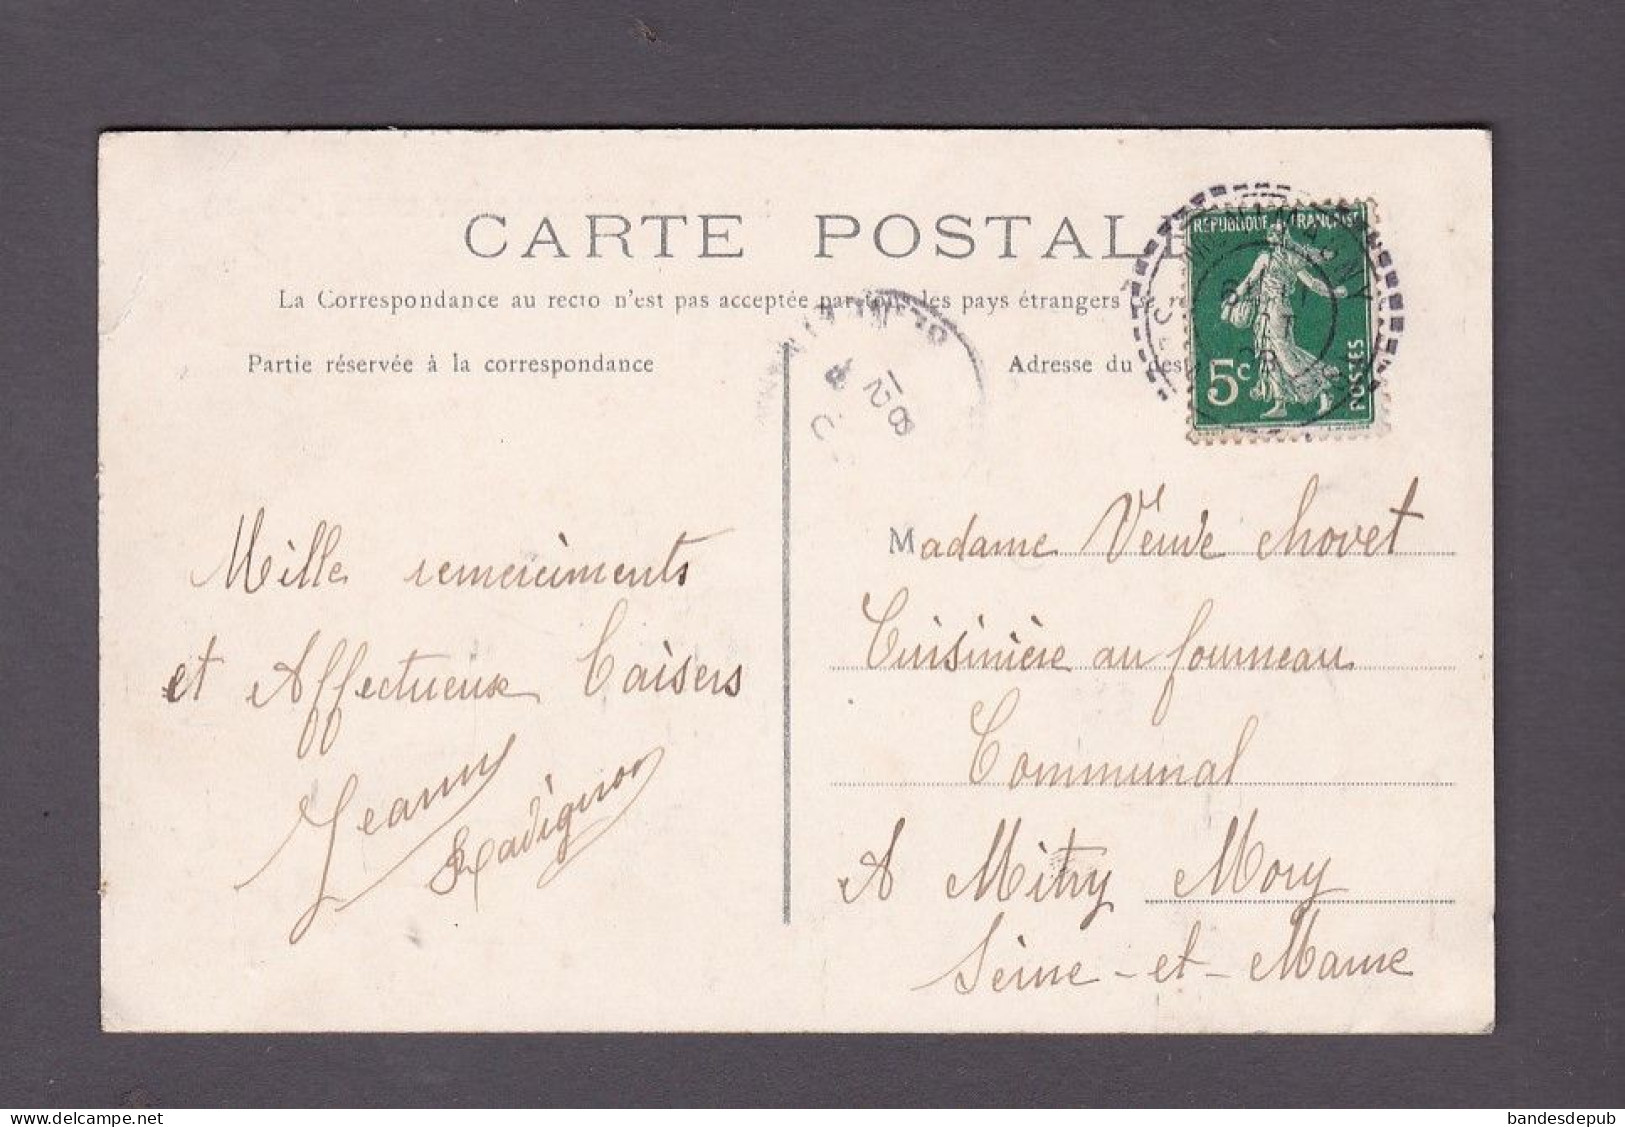 CARTE POSTALE
La Correspondance au recto n'est pas acceptée par tous les pays étrangers
Partie réservée à la correspondance
Adresse du
RÉPUBLIQUE FRANÇAISE
5c
POSTES
Mille remerciments
et Affectueux Baisers
Jeanne
Madame Veuve Chovet
Cuisinière au fourneau
Communal
A Mitry Mory
Seine-et-Marne
delcampe.net
bandesdepub